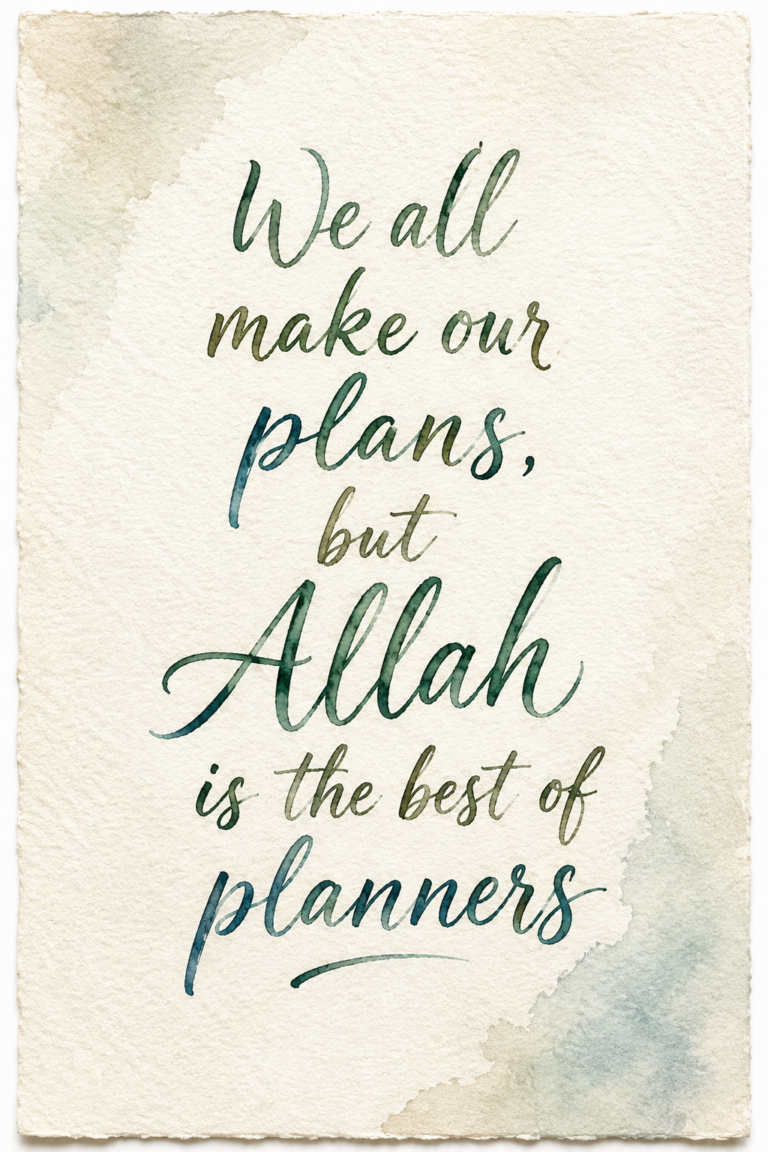 We all
make our
plans,
but
Allah
is the best of
planners